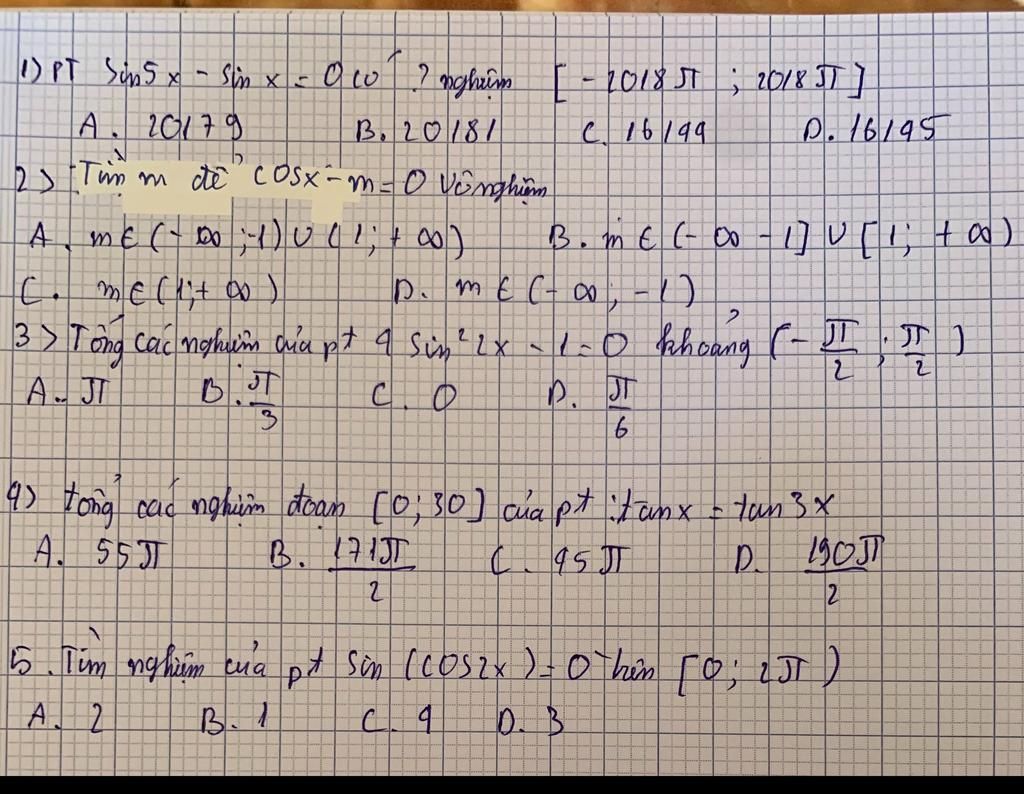 1) PT sin5x - sin x = 0 có ? nghiệm [-2018π ; 2018π]
A. 20179 B. 20181 C. 16144 D. 16145
2> Tìm m để cosx - m = 0 Vô nghiệm
A. m∈(-∞;-1)∪(1;+∞) B. m∈(-∞ -1]∪[1; +∞)
C. m∈(1;+∞) D. m∈(-∞; -1)
3> Tổng các nghiệm của pt 4 sin² 2x - 1 = 0 khoảng (-π/2 ; π/2)
A. π B. π/3 C. 0 D. π/6
4> tổng các nghiệm đoạn [0; 30] của pt : tanx = tan3x
A. 55π B. 171π/2 C. 45π D. 190π/2
5. Tìm nghiệm của pt sin (cos2x) = 0 trên [0; 2π)
A. 2 B. 1 C. 4 D. 3